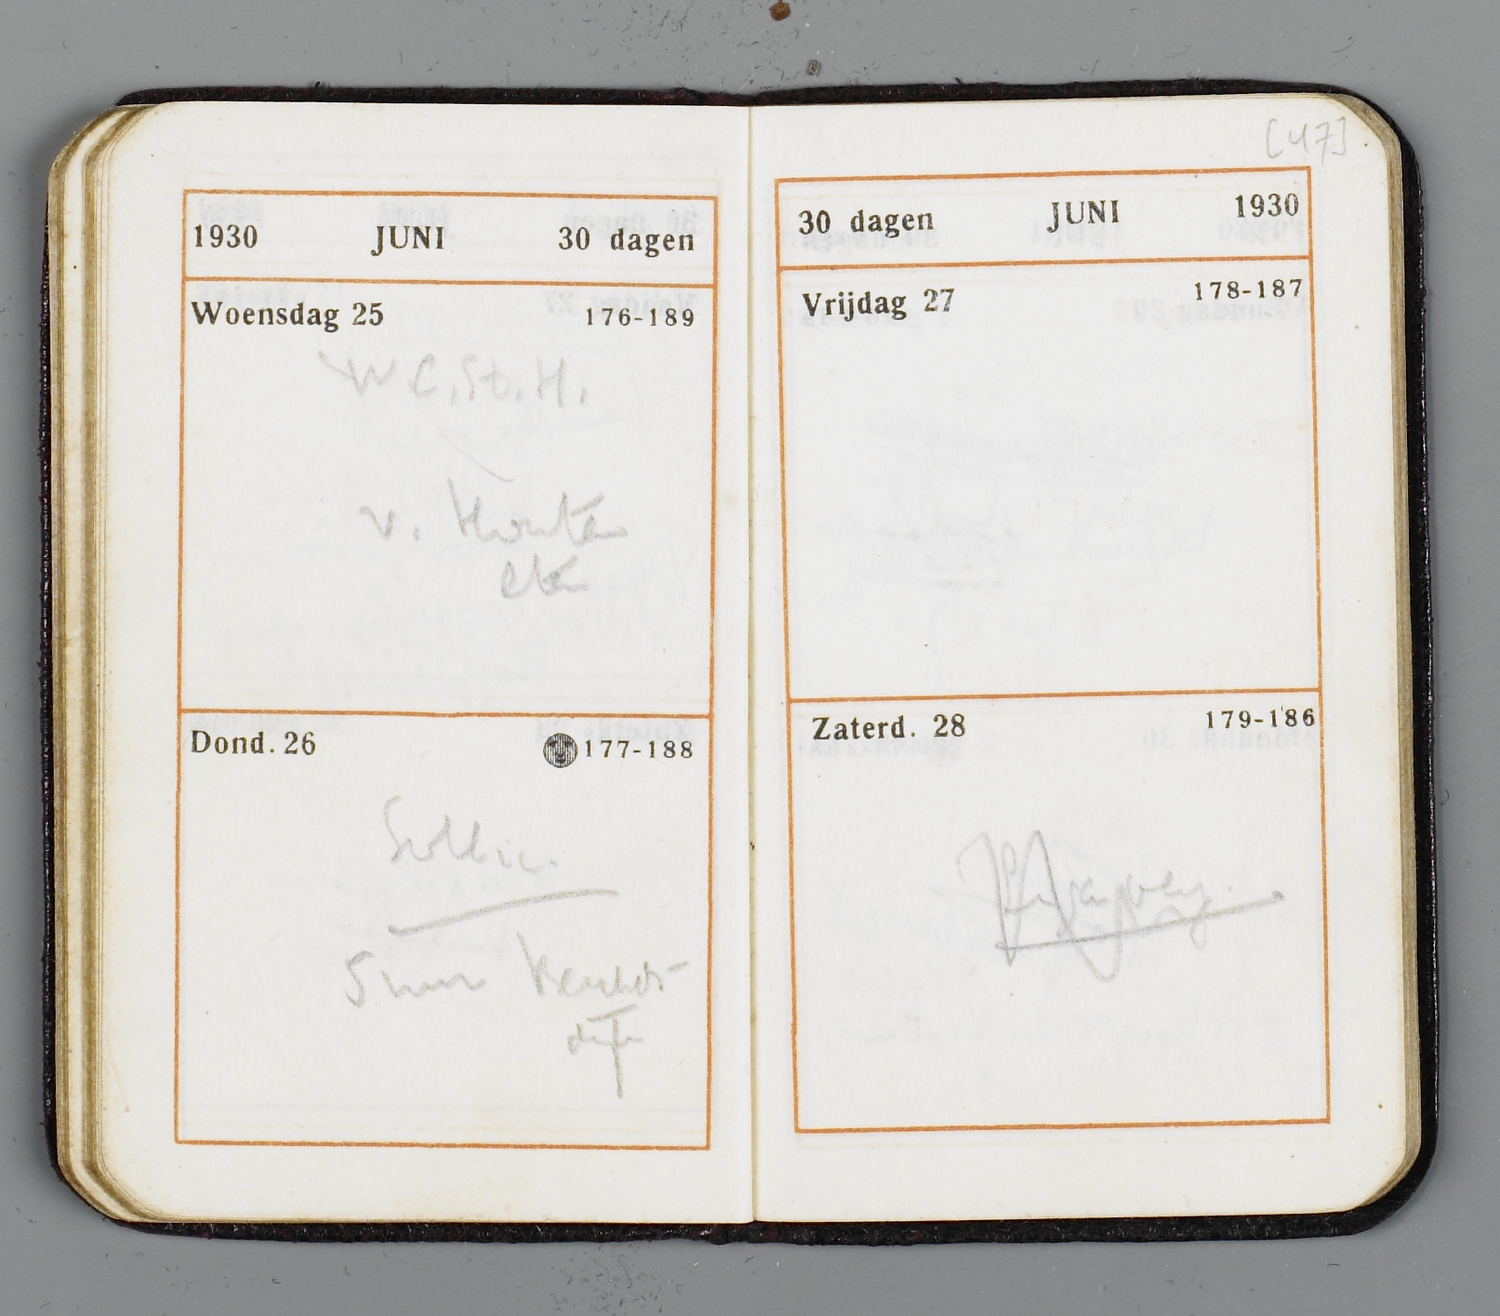 1930 JUNI 30 dagen
Woensdag 25 176-189
W C. St. H.
v. Houten
Dond. 26 177-188
[47]
30 dagen JUNI 1930
Vrijdag 27 178-187
Zaterd. 28 179-186